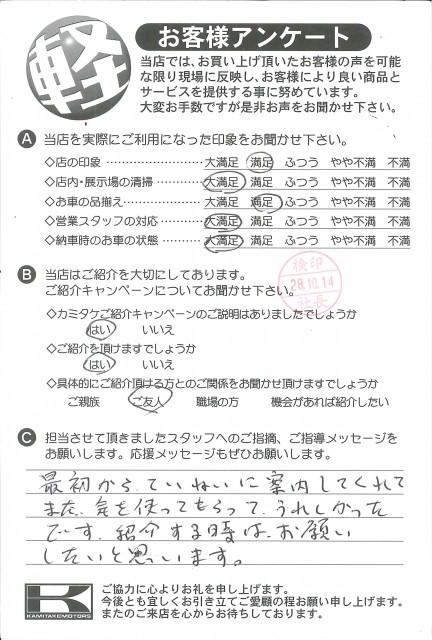 軽
お客様アンケート
当店では、お買い上げ頂いたお客様の声を可能
な限り現場に反映し、お客様により良い商品と
サービスを提供する事に努めています。
大変お手数ですが是非お声をお聞かせ下さい。
A 当店を実際にご利用になった印象をお聞かせ下さい。
◇店の印象 ……………………… 大満足 満足 ふつう やや不満 不満
◇店内・展示場の清掃 ………… 大満足 満足 ふつう やや不満 不満
◇お車の品揃え ………………… 大満足 満足 ふつう やや不満 不満
◇営業スタッフの対応 ………… 大満足 満足 ふつう やや不満 不満
◇納車時のお車の状態 ………… 大満足 満足 ふつう やや不満 不満
B 当店はご紹介を大切にしております。
ご紹介キャンペーンについてお聞かせ下さい。
検印
28.10.14
社長
◇カミタケご紹介キャンペーンのご説明はありましたでしょうか
はい いいえ
◇ご紹介を頂けますでしょうか
はい いいえ
◇具体的にご紹介頂ける方とのご関係をお聞かせ頂けますでしょうか
ご親族 ご友人 職場の方 機会があれば紹介したい
C 担当させて頂きましたスタッフへのご指摘、ご指導メッセージを
お願いします。応援メッセージもぜひお願いします。
最初から、ていねいに案内してくれて
また、気を使ってもらって、うれしかった
です。紹介する時は、お願い
したいと思います。
K
KAMITAKEMOTORS
ご協力に心よりお礼を申し上げます。
今後とも宜しくお引き立てご愛顧の程お願い申し上げます。
またのご来店を心からお待ちしております。